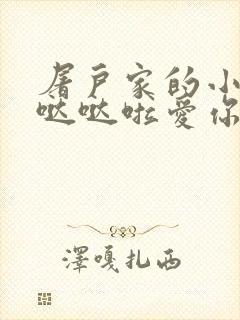 屠户家的小
哒哒啦爱你
澤嘎扎西